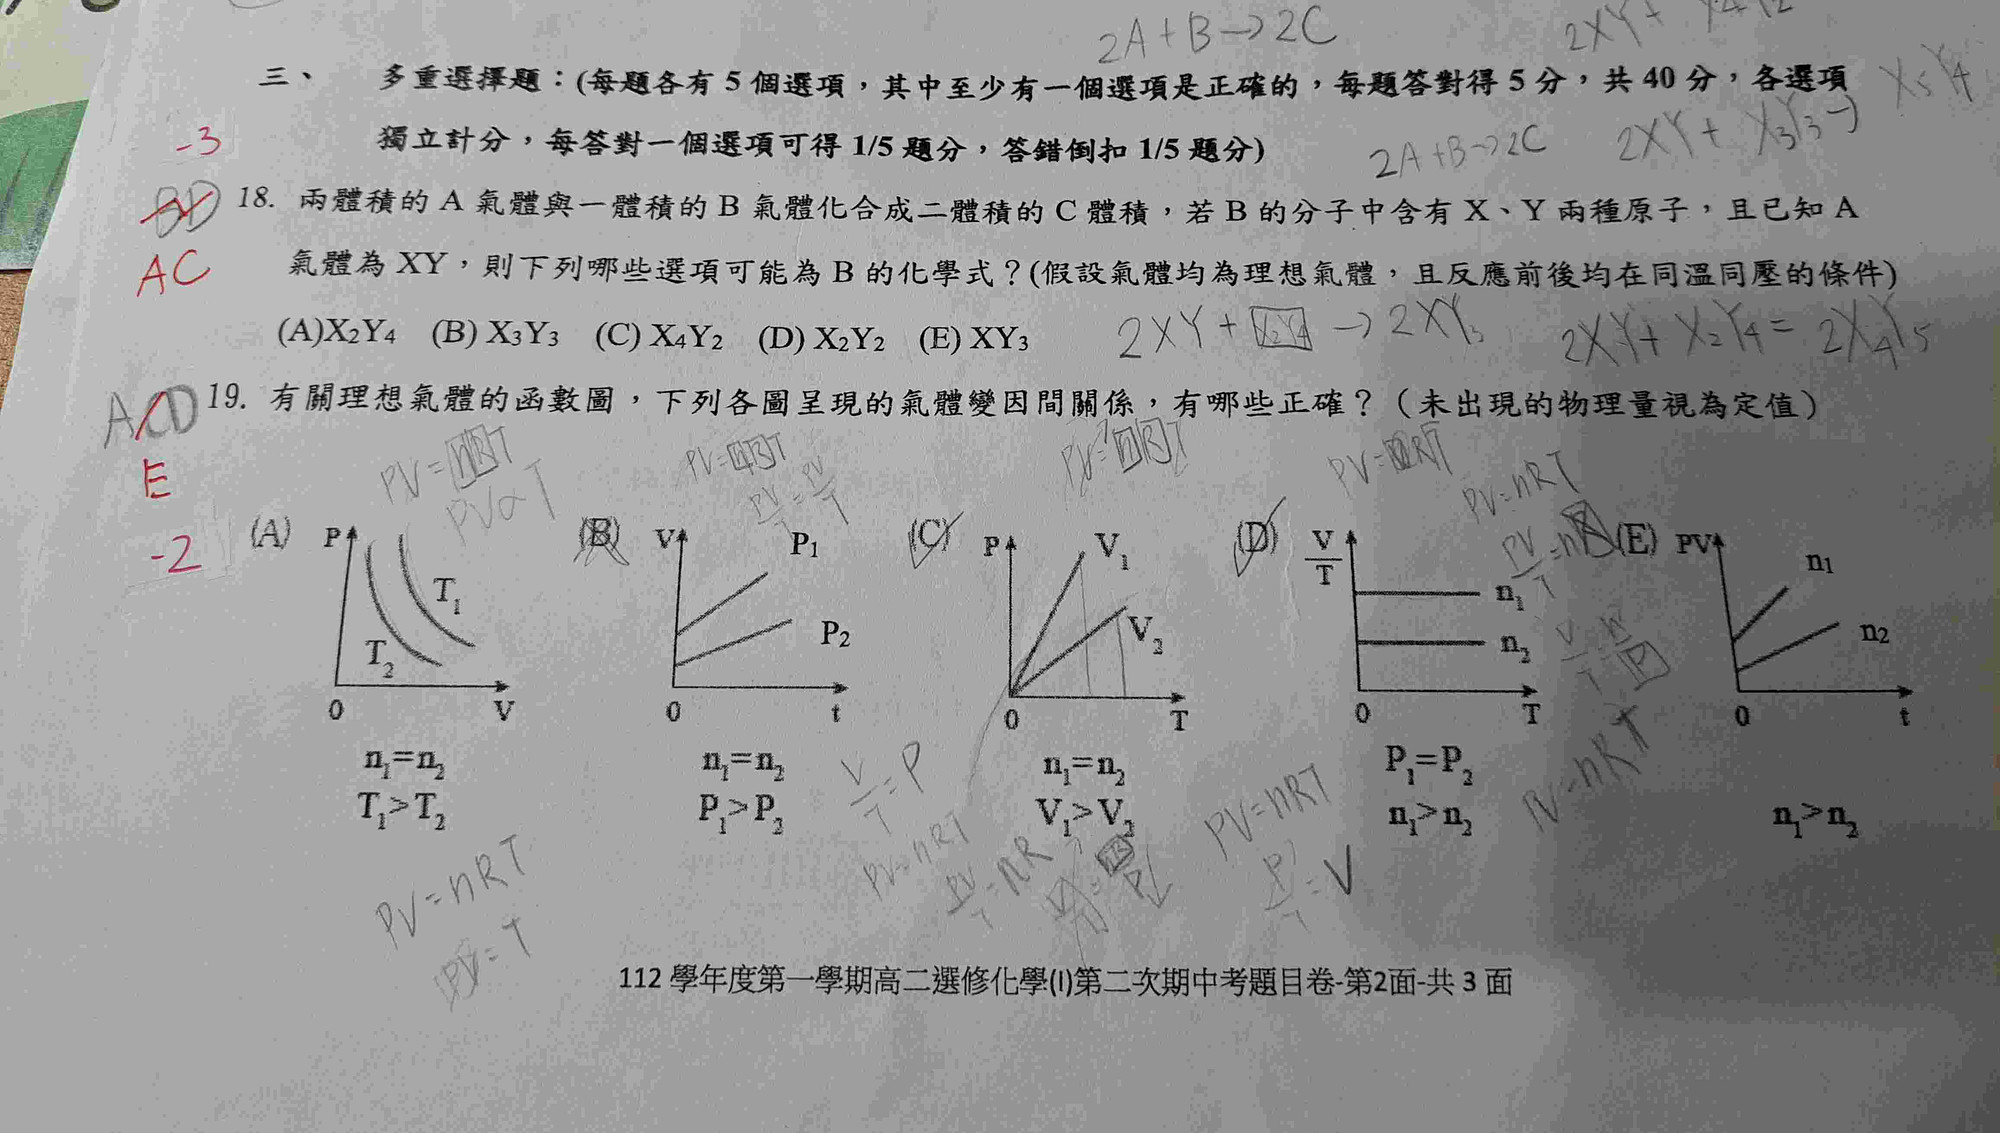 2A+B→2C
三、 多重選擇題：(每題各有 5 個選項，其中至少有一個選項是正確的，每題答對得 5 分，共 40 分，各選項
獨立計分，每答對一個選項可得 1/5 題分，答錯倒扣 1/5 題分)
-3
2A+B→2C
2XY+ X3Y3→
BD
AC
18. 兩體積的 A 氣體與一體積的 B 氣體化合成二體積的 C 體積，若 B 的分子中含有 X、Y 兩種原子，且已知 A
氣體為 XY，則下列哪些選項可能為 B 的化學式？(假設氣體均為理想氣體，且反應前後均在同溫同壓的條件)
(A)X2Y4 (B) X3Y3 (C) X4Y2 (D) X2Y2 (E) XY3
2XY + X2Y4 → 2XY3
2XY+ X2Y4 = 2X4Y5
ACD
E
-2
19. 有關理想氣體的函數圖，下列各圖呈現的氣體變因間關係，有哪些正確？（未出現的物理量視為定值）
PV=nRT
PV∝T
PV=nRT
PV=nRT
PV=nRT
PV=nRT
(A) P T1 T2 0 V
n1=n2
T1>T2
(B) V P1 P2 0 t
n1=n2
P1>P2
(C) P V1 V2 0 T
n1=n2
V1>V2
(D) V/T n1 n2 0 T
P1=P2
n1>n2
(E) PV n1 n2 0 t
n1>n2
PV=nRT
PV=T
V/T=P
PV=nRT
PV/T=nR
PV=nRT
P/T=V
PV=nRT
112 學年度第一學期高二選修化學(I)第二次期中考題目卷-第2面-共 3 面